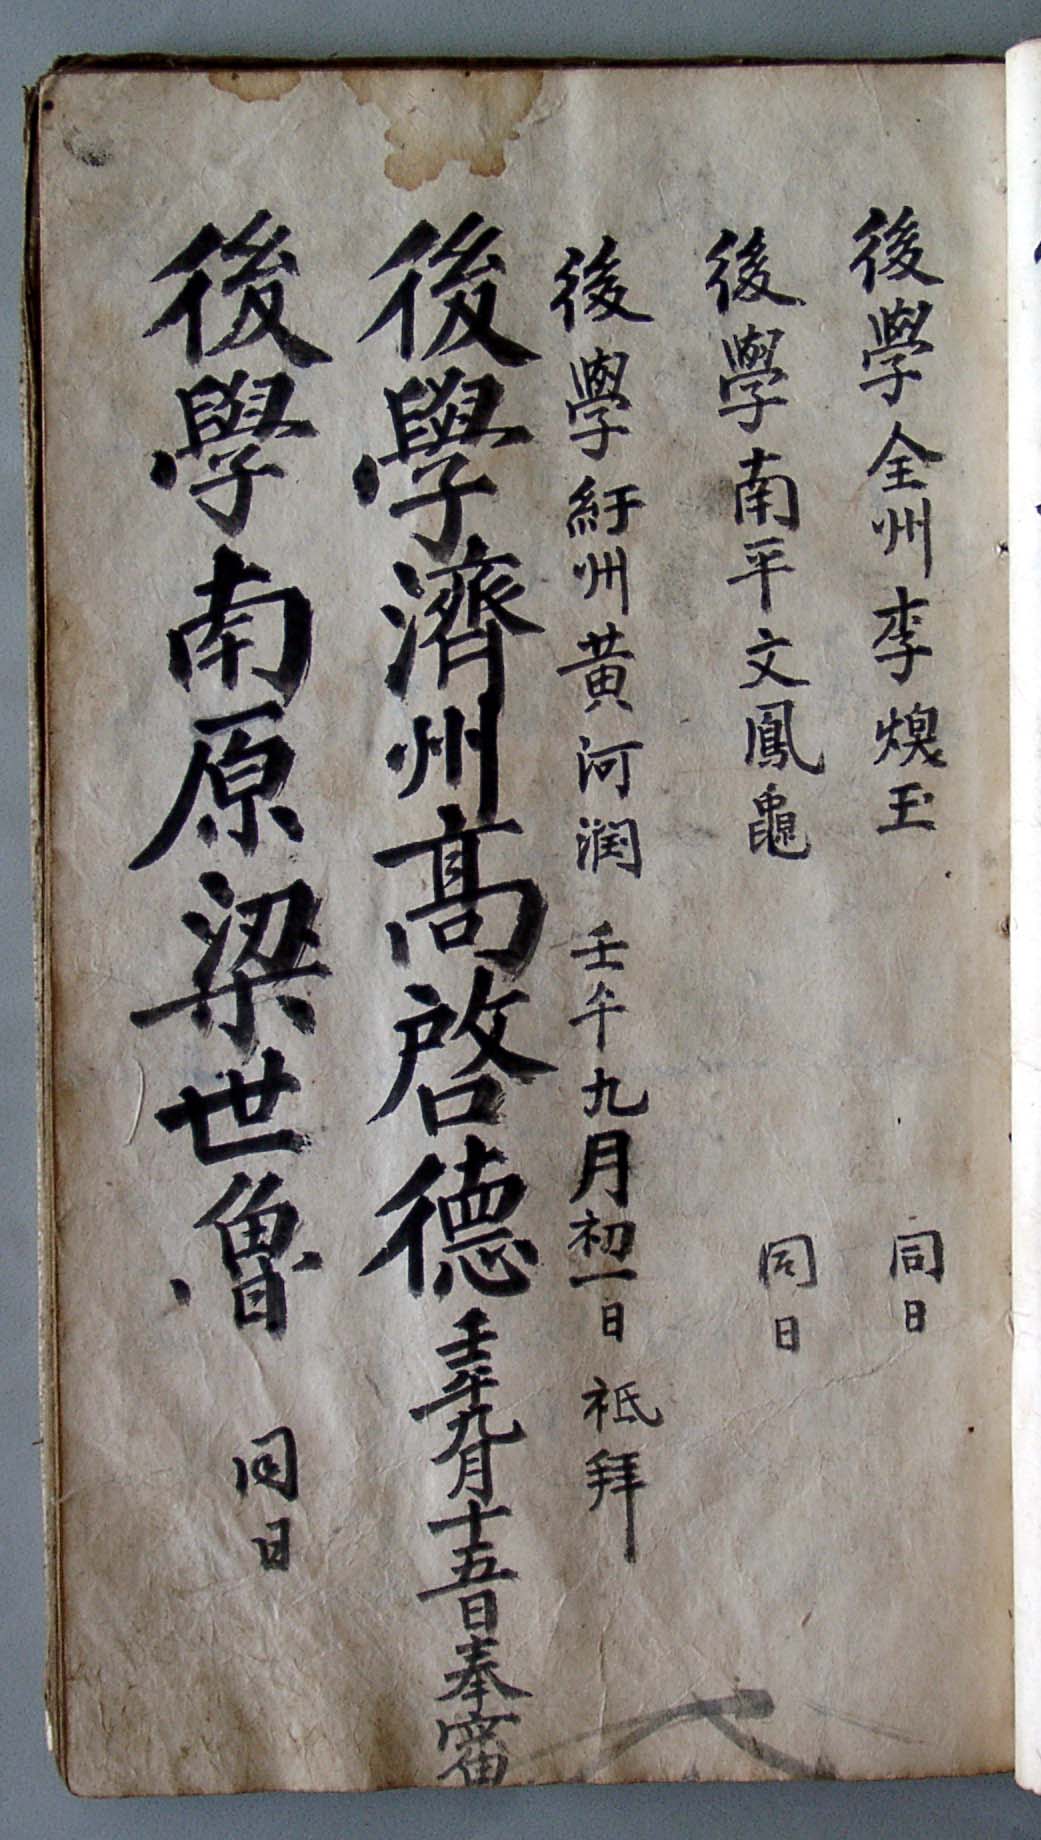 後學全州李煥玉 同日
後學南平文鳳龜 同日
後學紆州黄河潤 壬午九月初一日 祗拜
後學濟州高啓德 壬午九月十五日奉審
後學南原梁世魯 同日